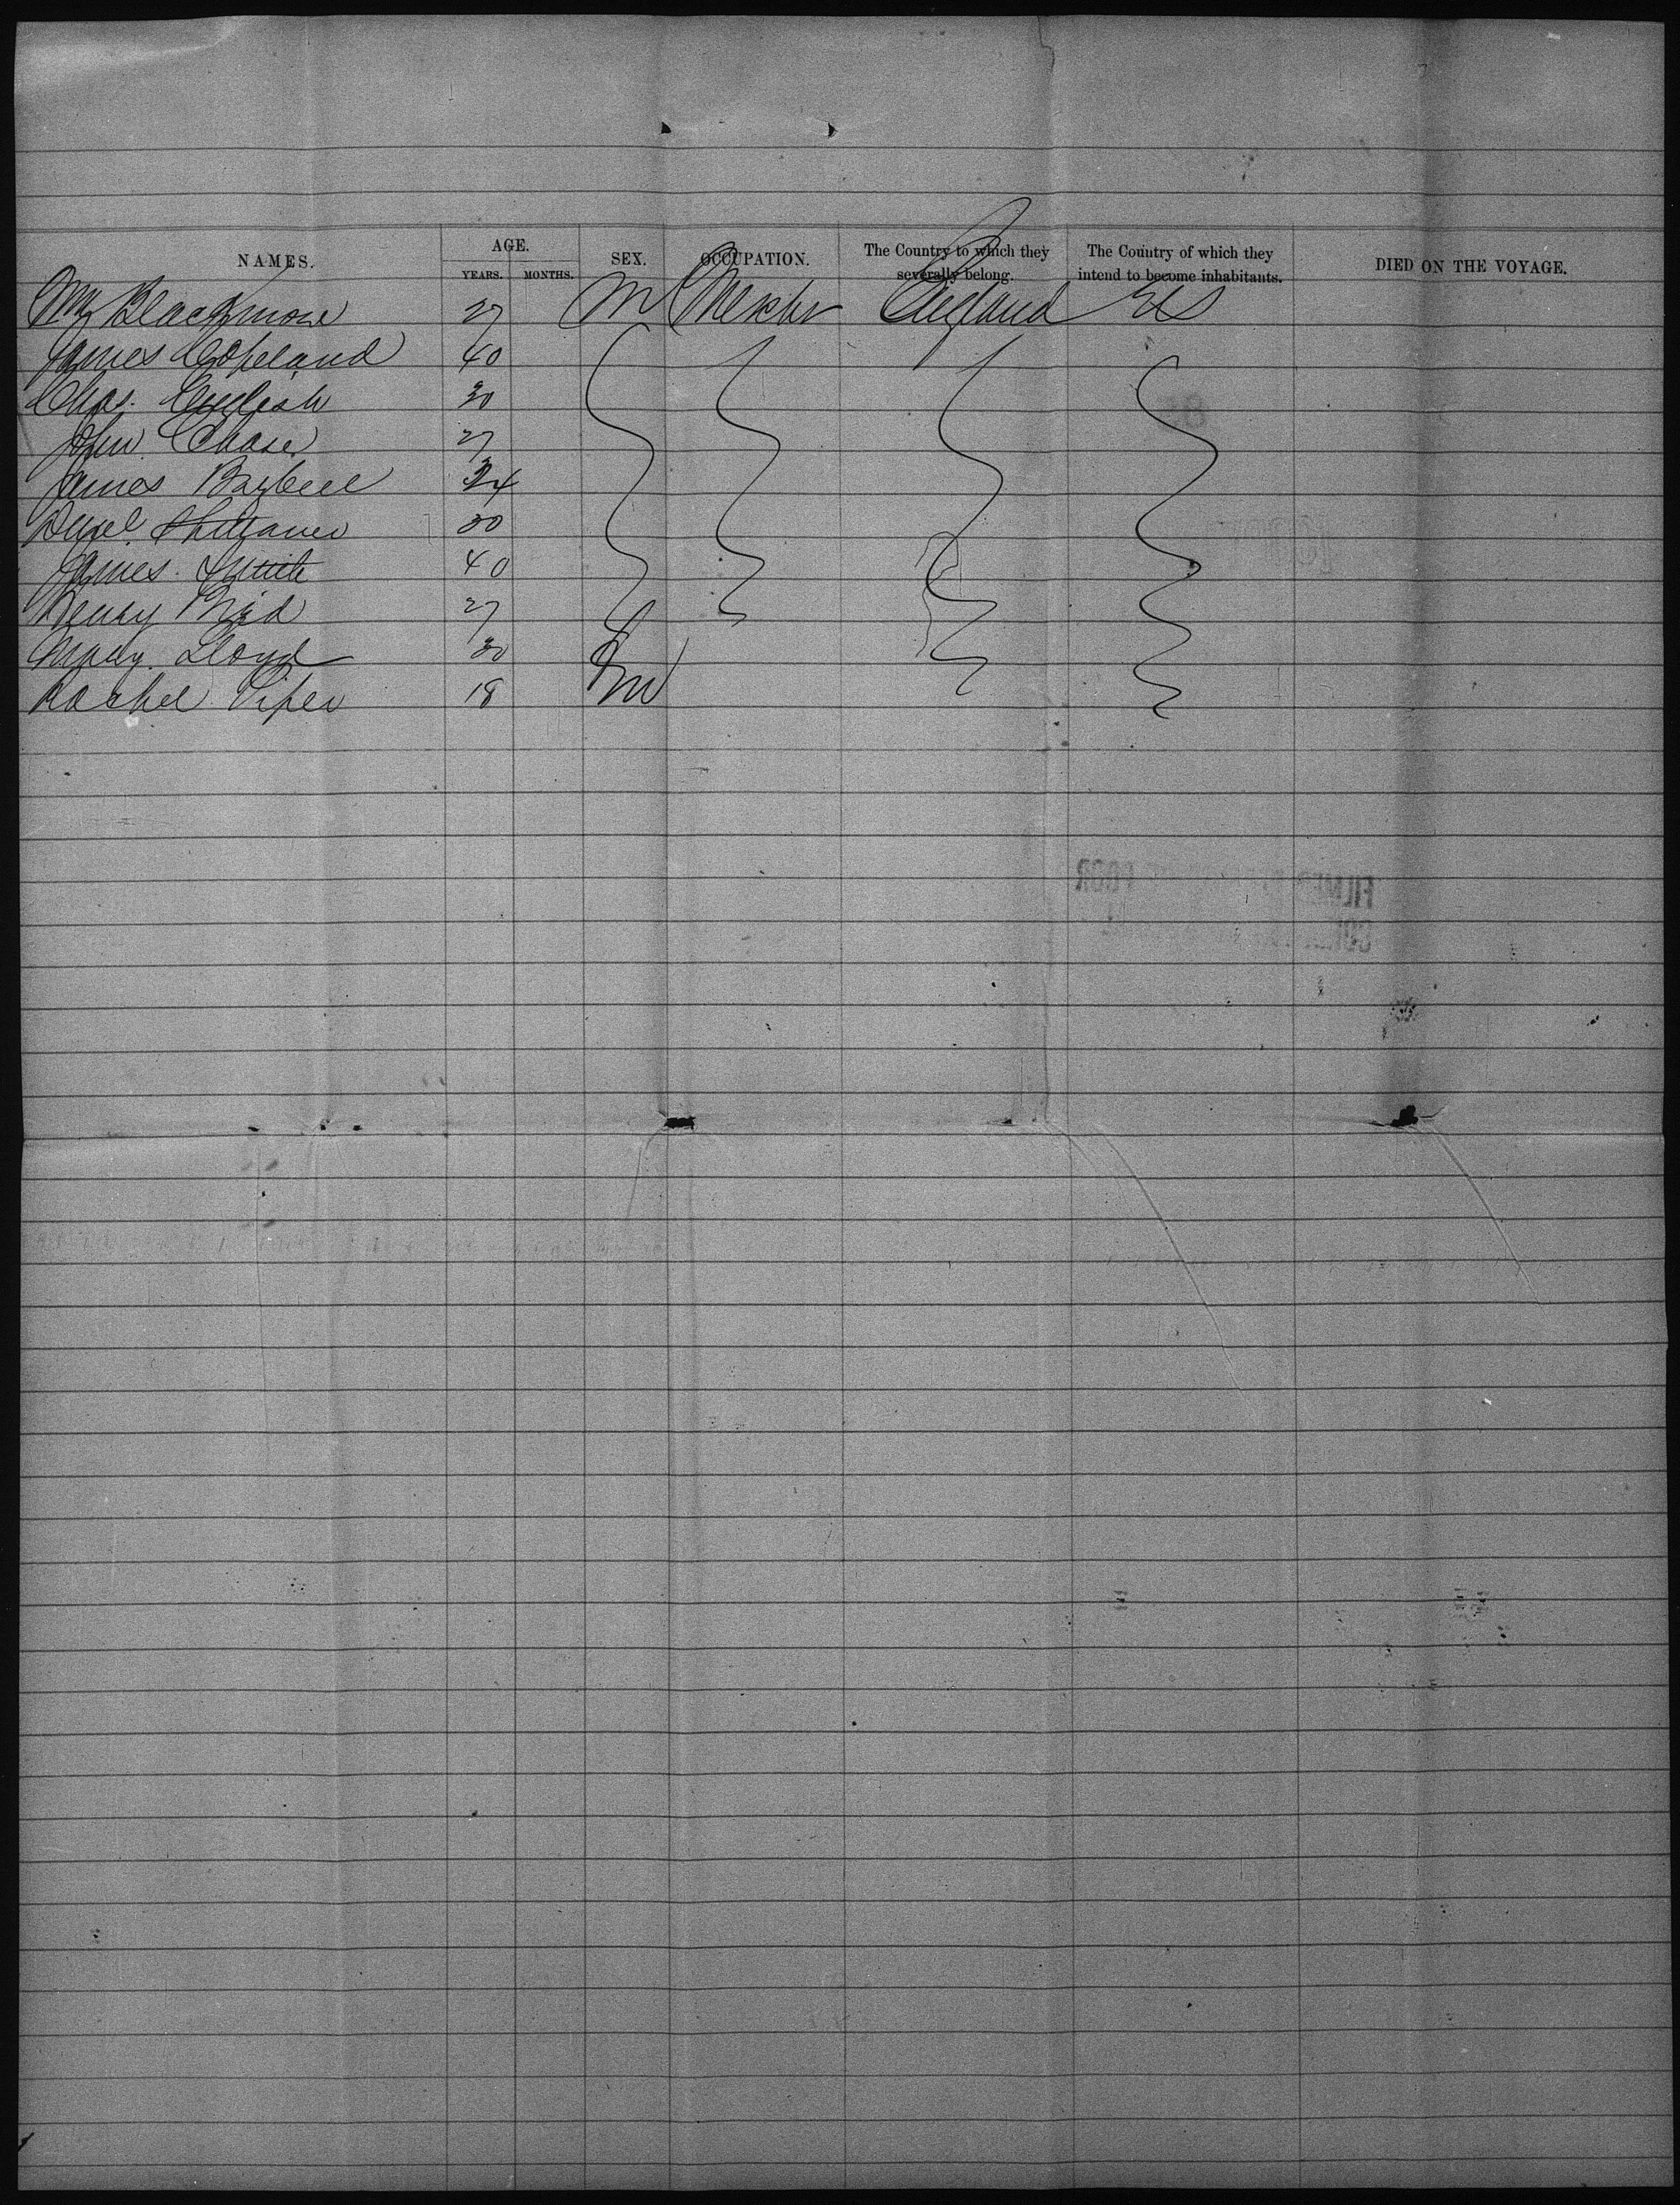 NAMES. AGE. YEARS. MONTHS. SEX. OCCUPATION. The Country to which they severally belong. The Country of which they intend to become inhabitants. DIED ON THE VOYAGE.
Wm Blackmore 27 M Mechr England US
James Copeland 40
Chas. English 30
John Chase 27
James 34
30
James Smith 40
Henry Bird 27
Mary Lloyd 30
Rachel Piper 18